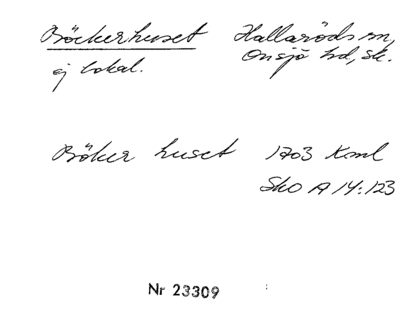 Böckerhuset Hallaröds sn,
ej lokal. Onsjö hd, Sk.
Böker huset 1703 Kml
Sk0 A 14:123
Nr 23309